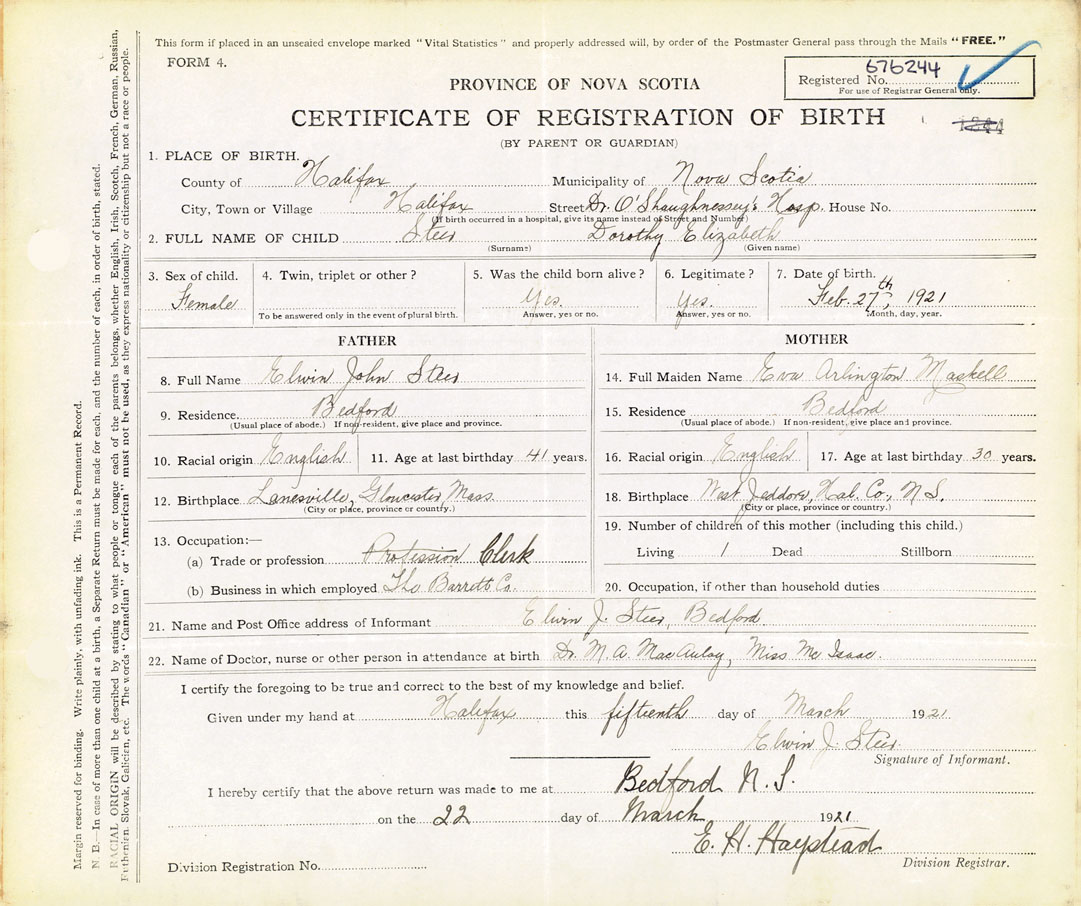 This form if placed in an unsealed envelope marked "Vital Statistics" and properly addressed will, by order of the Postmaster General pass through the Mails "FREE."
FORM 4.
676244
Registered No.
For use of Registrar General only.
PROVINCE OF NOVA SCOTIA
CERTIFICATE OF REGISTRATION OF BIRTH
(BY PARENT OR GUARDIAN)
1. PLACE OF BIRTH.
County of Halifax Municipality of Nova Scotia
City, Town or Village Halifax Street Dr. O'Shaughnessey's Hosp. House No.
(If birth occurred in a hospital, give its name instead of Street and Number)
2. FULL NAME OF CHILD Steer Dorothy Elizabeth
(Surname) (Given name)
3. Sex of child. 4. Twin, triplet or other? 5. Was the child born alive? 6. Legitimate? 7. Date of birth.
Female Yes. Yes. Feb. 27th, 1921
To be answered only in the event of plural birth. Answer, yes or no. Answer, yes or no. Month, day, year.
FATHER
8. Full Name Elwin John Steer
9. Residence. Bedford
(Usual place of abode.) If non-resident, give place and province.
10. Racial origin English 11. Age at last birthday 41 years.
12. Birthplace Lanesville, Gloucester, Mass.
(City or place, province or country.)
13. Occupation:—
(a) Trade or profession Profession Clerk
(b) Business in which employed Tho Barrett Co.
MOTHER
14. Full Maiden Name Eva Arlington Maskell
15. Residence Bedford
(Usual place of abode.) If non-resident, give place and province.
16. Racial origin English 17. Age at last birthday 30 years.
18. Birthplace West Jeddore, Hal. Co., N.S.
(City or place, province or country.)
19. Number of children of this mother (including this child.)
Living 1 Dead Stillborn
20. Occupation, if other than household duties
21. Name and Post Office address of Informant Elwin J. Steer, Bedford.
22. Name of Doctor, nurse or other person in attendance at birth Dr. M. A. MacAulay, Miss McIsaac.
I certify the foregoing to be true and correct to the best of my knowledge and belief.
Given under my hand at Halifax this fifteenth day of March 1921.
Elwin J. Steer.
Signature of Informant.
I hereby certify that the above return was made to me at Bedford N. S.
on the 22 day of March 1921
E. H. Haystead
Division Registration No. Division Registrar.
Margin reserved for binding. Write plainly, with unfading ink. This is a Permanent Record.
N. B.—In case of more than one child at a birth, a Separate Return must be made for each, and the number of each, in order of birth, stated.
RACIAL ORIGIN will be described by stating to what people or tongue each of the parents belongs, whether English, Irish, Scotch, French, German, Russian,
Ruthenian, Slovak, Galician, etc. The words "Canadian" or "American" must not be used, as they express nationality or citizenship but not a race or people.